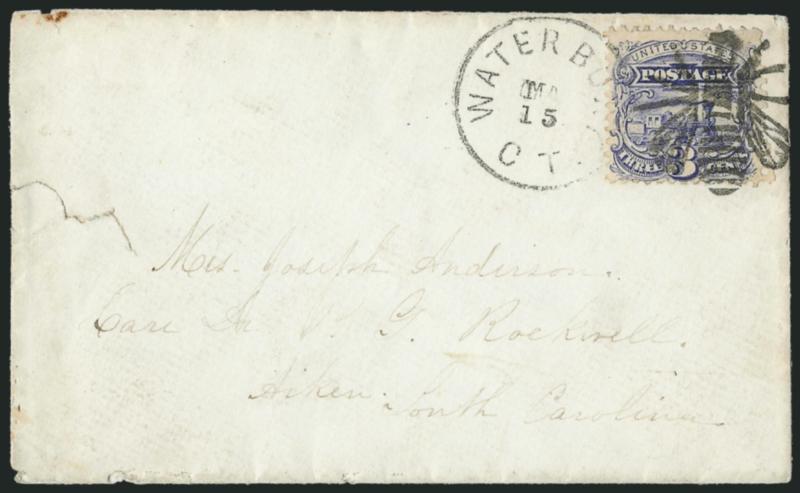 WATERBU
MA
15
CT.
UNITED STATES
POSTAGE
THREE 3 CENTS
Mrs. Joseph Anderson.
Care Dr. P. G. Rockwell.
Aiken. South Carolina.